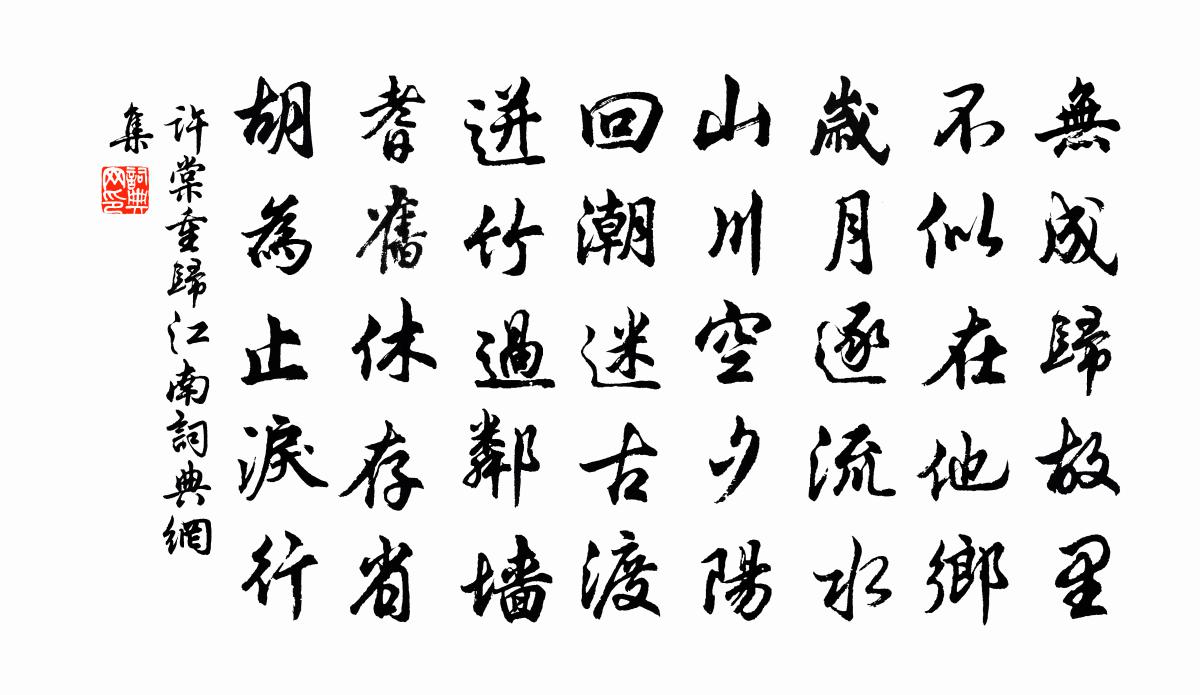 無成歸故里
不似在他鄉
歲月逐流水
山川空夕陽
回潮迷古渡
迸竹過鄰墻
耆舊休存省
胡為止淚行
許棠重歸江南詞典網
集
詞典網印